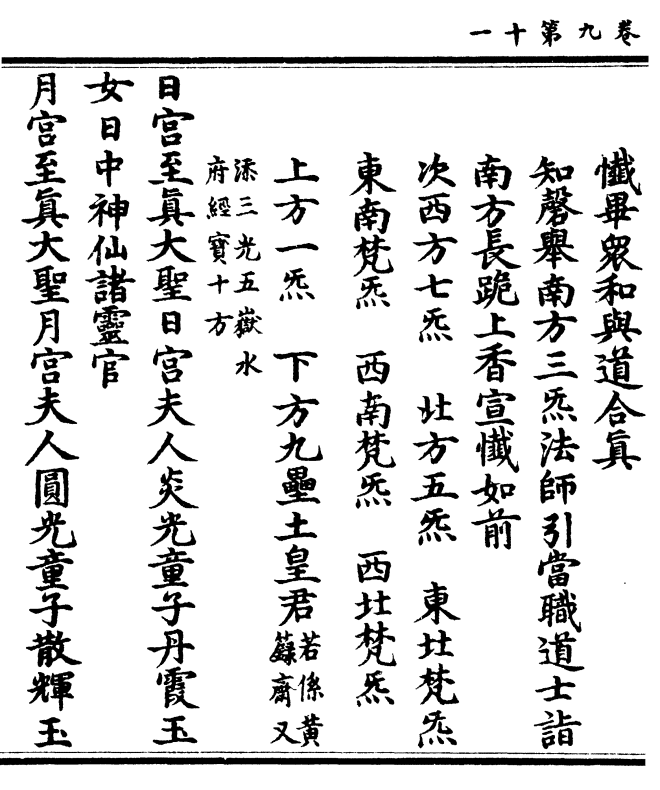 卷九第十一
懺畢眾和與道合眞
知磬舉南方三炁法師引當職道士詣
南方長跪上香宣懺如前
次西方七炁　北方五炁　東北梵炁
東南梵炁　西南梵炁　西北梵炁
上方一炁　下方九壘土皇君若係黃
籙齋又
添三光五嶽水
府經寶十方
日宮至眞大聖日宮夫人炎光童子丹霞玉
女日中神仙諸靈官
月宮至眞大聖月宮夫人圓光童子散輝玉